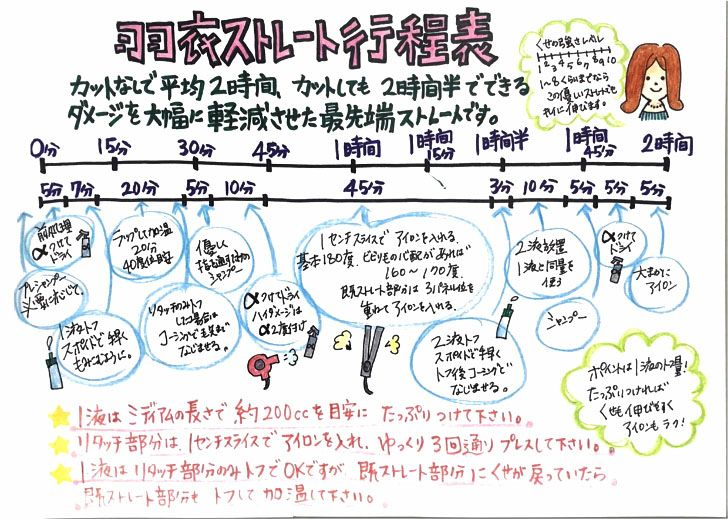 羽衣ストレート行程表
カットなしで平均2時間、カットしても2時間半でできる
ダメージを大幅に軽減させた最先端ストレートです。
くせの強さレベル
1 2 3 4 5 6 7 8 9 10
1~8くらいまでなら
この優しいストレートでも
キレイに伸びます。
0分 15分 30分 45分 1時間 1時間15分 1時間半 1時間45分 2時間
5分 7分 20分 5分 10分 45分 3分 10分 5分 5分 5分
前処理
αつけて
ドライ
プレシャンプー
必要に応じて。
1液トフ
スポイトで軽く
もみこむように。
ラップして加温
20分
40度位
リタッチのみトフ
した場合は
コーミングで毛先まで
なじませる。
優しく
指を通すだけの
シャンプー
αつけてドライ
ハイダメージは
α2度付け
1センチスライスでアイロンを入れる。
基本180度、ビビリの心配があれば
160~170度
既ストレート部分は3パネル位を
重ねてアイロンを入れる。
2液トフ
スポイトで手早く
トフ後コーミングで
なじませる。
2液放置
1液と同量を
使う
シャンプー
αつけて
ドライ
大まかに
アイロン
ポイントは1液のトフ量!
たっぷりつければ
くせも伸びやすく
アイロンもラク!
1液はミディアムの長さで約200ccを目安にたっぷりつけて下さい。
リタッチ部分は、1センチスライスでアイロンを入れ、ゆっくり3回通りプレスして下さい。
1液はリタッチ部分のみトフでOKですが、既ストレート部分にくせが戻っていたら
既ストレート部分もトフして加温して下さい。